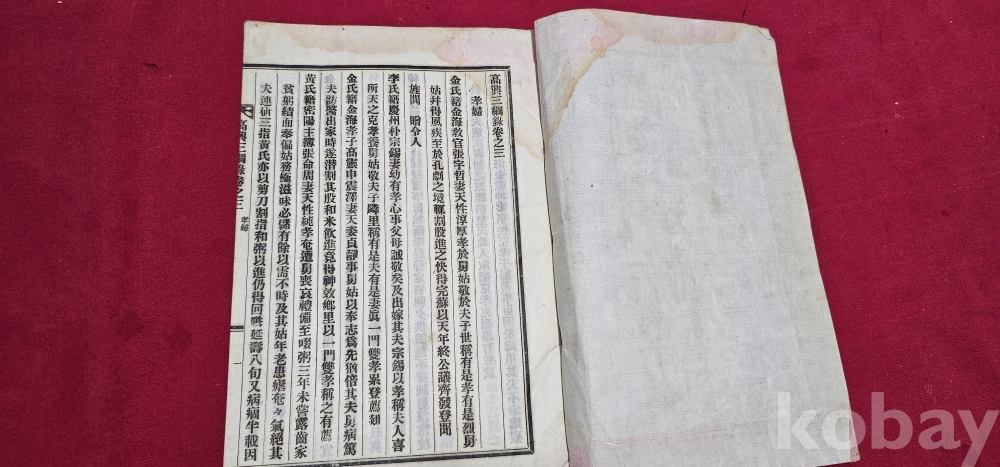 高興三綱錄卷之三
孝婦
金氏籍金海敎官張宇哲妻天性淳厚孝於舅姑敬於夫子世稱有是孝有是烈舅
姑幷得風疾至於孔劇之境輒割股進之快得完蘇以天年終公議齊發登聞
旌閭 贈令人
李氏籍慶州朴宗錫妻幼有孝心事父母誠敬矣及出嫁其夫宗錫以孝稱夫人喜
所天之克孝養舅姑敬夫子隣里稱有是夫有是妻眞一門雙孝累登薦剡
金氏籍金海孝子高憲申震澤妻天姿貞靜事舅姑以奉志爲先猶倍其夫舅病篤
夫訪醫出家時遂潛割其股和米飮進竟得神效鄕里以一門雙孝稱之有薦
黃氏籍密陽主簿張命周妻天性純孝奄遭舅喪哀禮備至啜粥三年未嘗露齒家
貧躬績而奉偏姑務極滋味必儲有餘以需不時及其姑年老患瘧奄々氣絕其
夫連斫三指黃氏亦以剪刀割指和粥以進仍得回甦延壽八旬又病痼半載因
高興三綱錄卷之三 孝婦 一
kobay